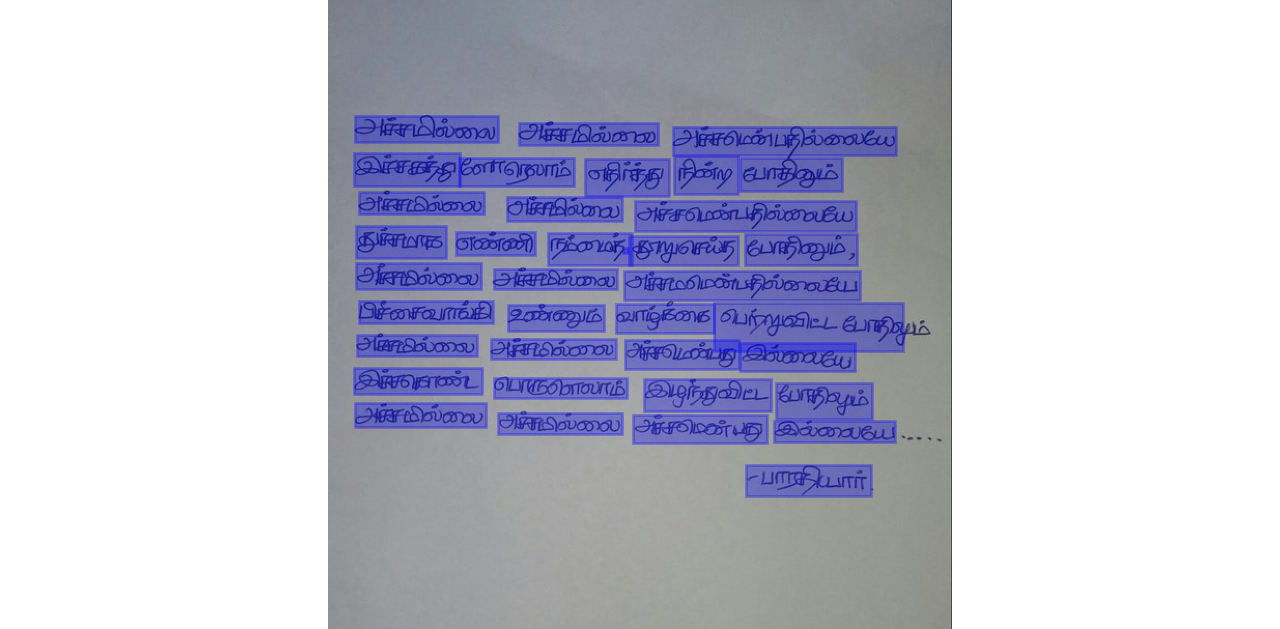 அச்சமில்லை அச்சமில்லை அச்சமென்பதில்லையே
இச்சகத்து ளோரெலாம் எதிர்த்து நின்ற போதினும்
அச்சமில்லை அச்சமில்லை அச்சமென்பதில்லையே
துச்சமாக எண்ணி நம்மைத் தூறுசெய்த போதினும்,
அச்சமில்லை அச்சமில்லை அச்சமமென்பதில்லையே
பிச்சைவாங்கி உண்ணும் வாழ்க்கை பெற்றுவிட்ட போதிலும்
அச்சமில்லை அச்சமில்லை அச்சமென்பது இல்லையே
இச்சைகொண்ட பொருளெலாம் இழந்துவிட்ட போதிலும்
அச்சமில்லை அச்சமில்லை அச்சமென்பது இல்லையே.....
-பாரதியார்.